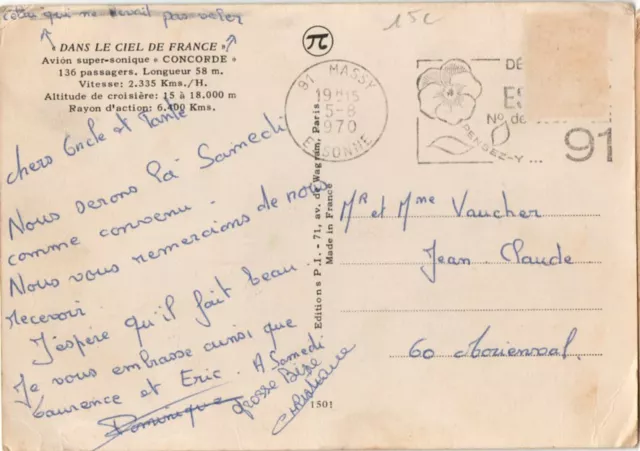 celui qui ne devait pas voler
« DANS LE CIEL DE FRANCE »
Avion super-sonique « CONCORDE »
136 passagers. Longueur 58 m.
Vitesse: 2.335 Kms./H.
Altitude de croisière: 15 à 18.000 m
Rayon d'action: 6.400 Kms.
chers Oncle et Tante
Nous serons là Samedi
comme convenu.
Nous vous remercions de nous
recevoir.
J'espère qu'il fait beau.
Je vous embrasse ainsi que
Laurence et Eric.
Dominique
A Samedi
grosse Bise
Christiane
1501
Editions P.I. - 71, av. de Wagram, Paris.
Made in France
π
15c
91 MASSY
19H15
5-8
1970
ESSONNE
PENDEZ-Y...
DE
No de
91
Mr et Mme Vaucher
Jean Claude
60 Morienval